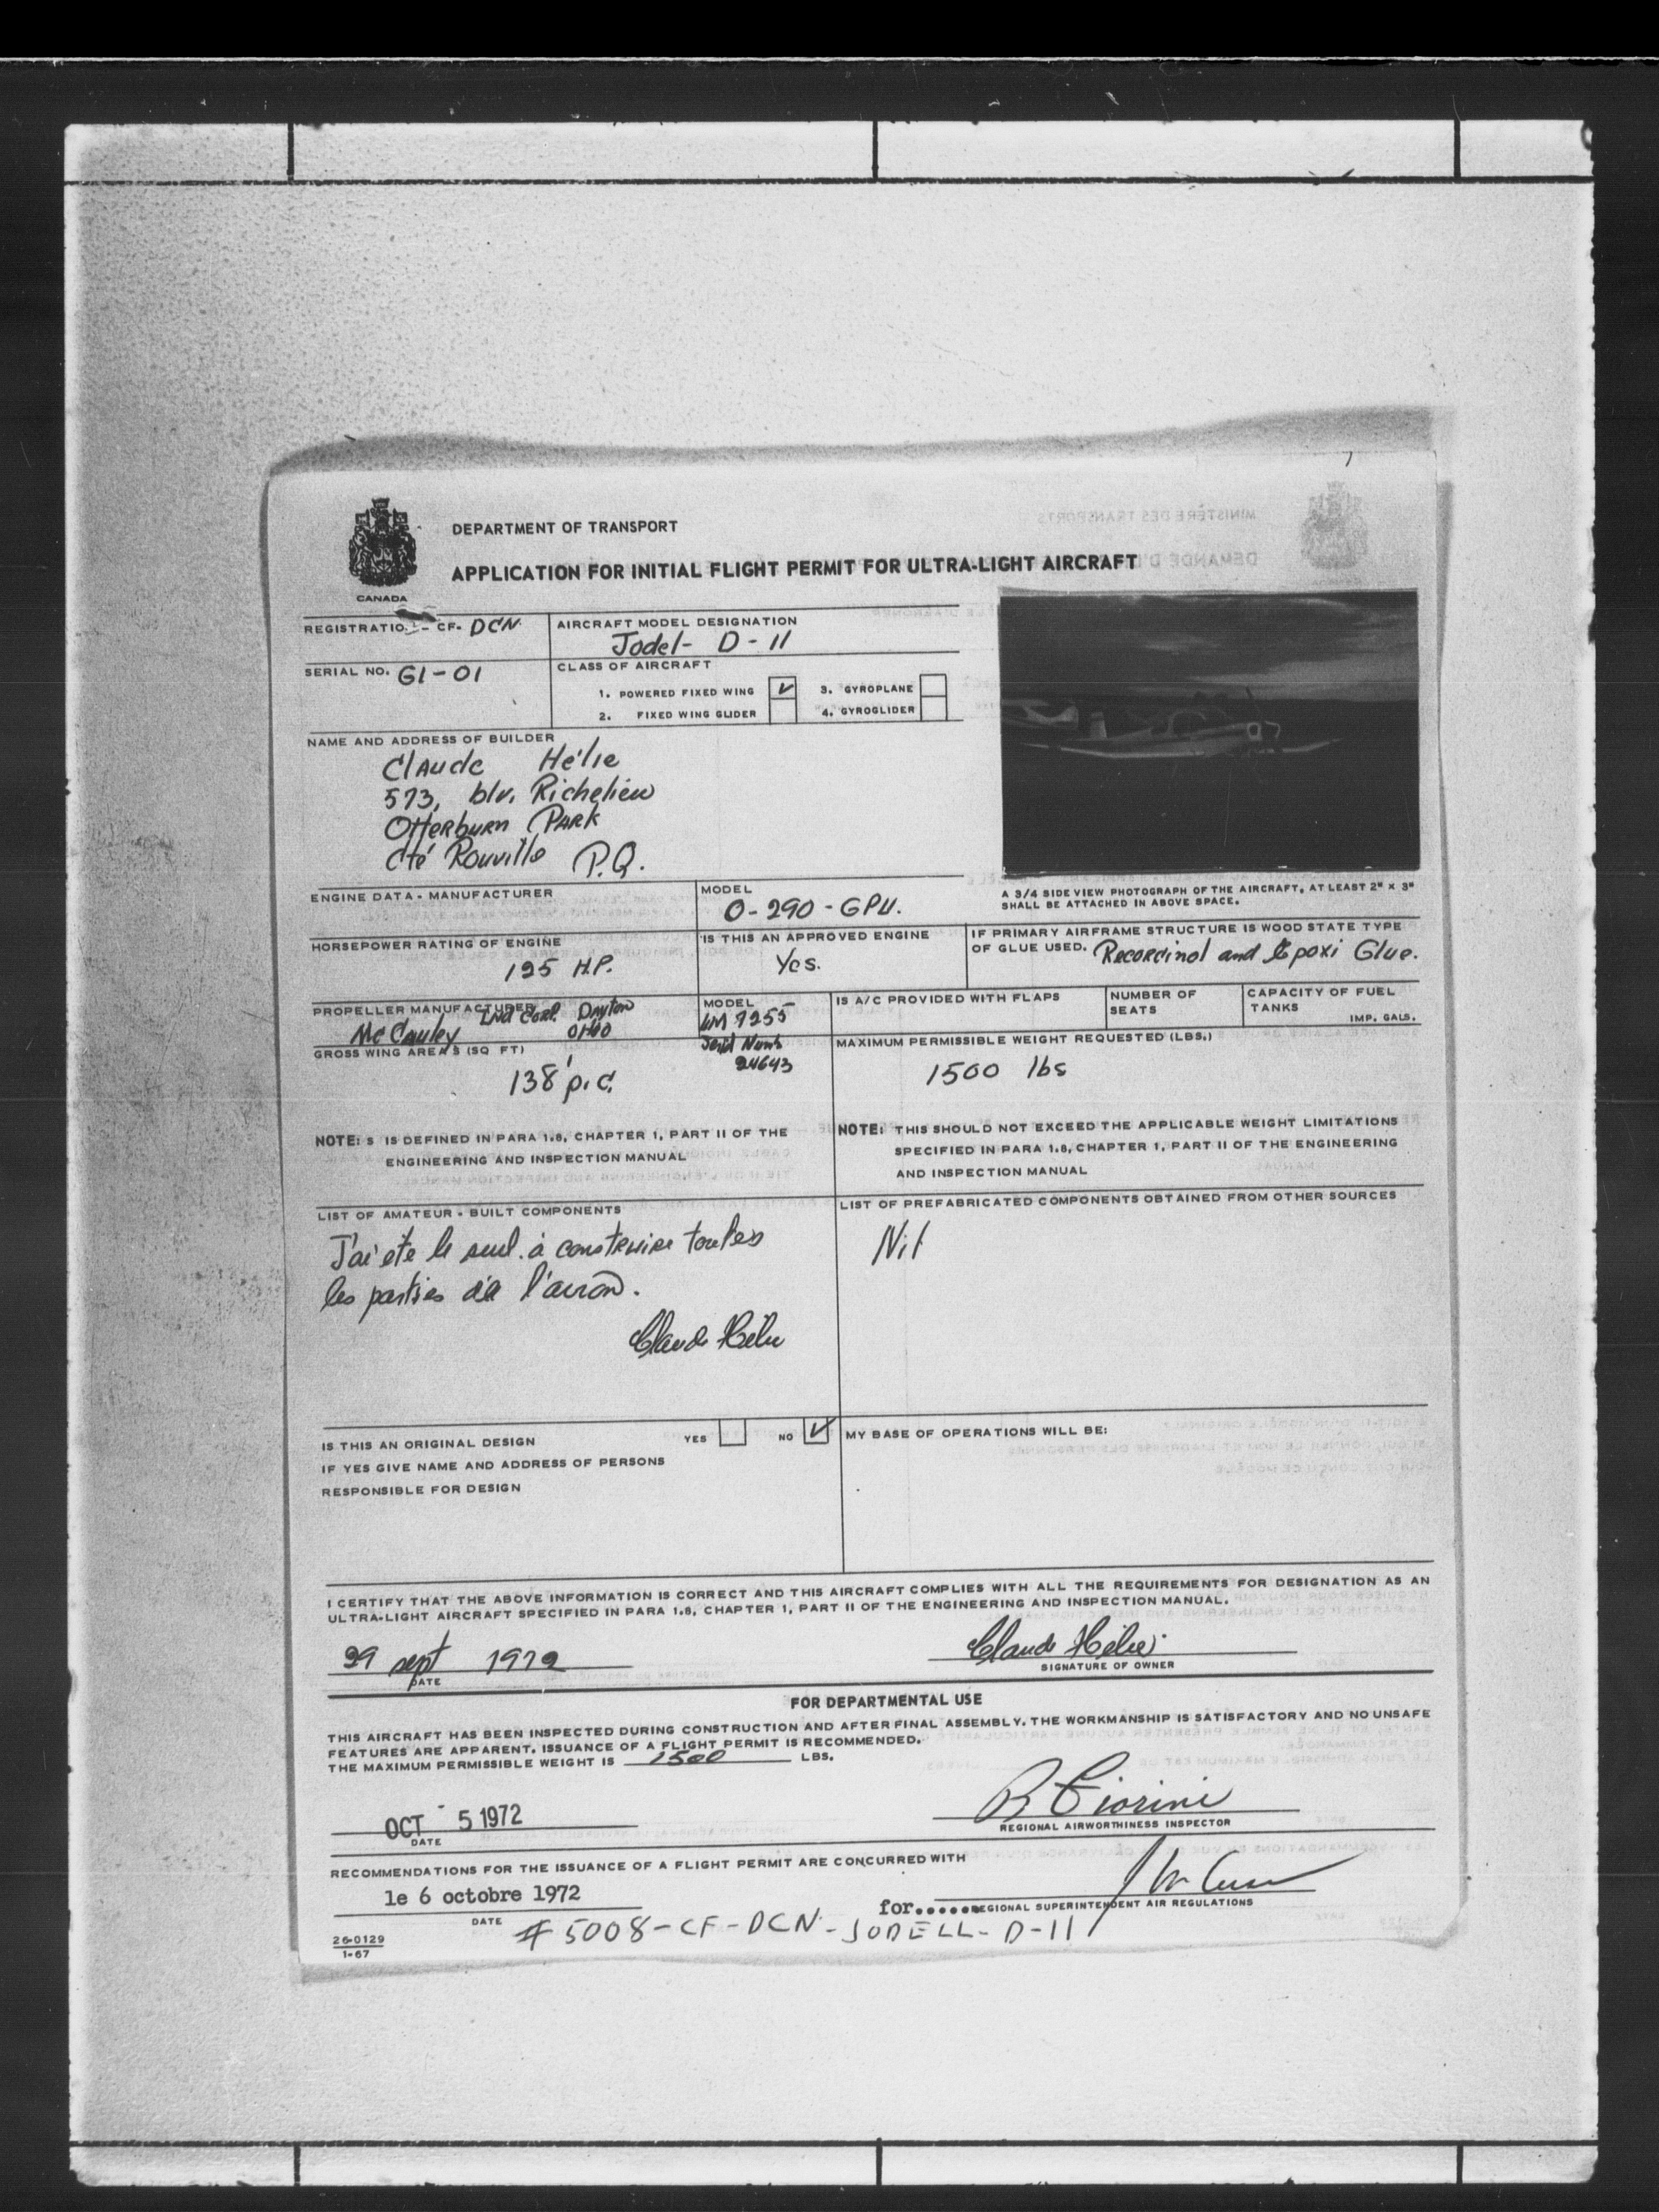 DEPARTMENT OF TRANSPORT
APPLICATION FOR INITIAL FLIGHT PERMIT FOR ULTRA-LIGHT AIRCRAFT
CANADA
REGISTRATION - CF- DCN
AIRCRAFT MODEL DESIGNATION
Jodel- D-11
SERIAL NO. G1-01
CLASS OF AIRCRAFT
1. POWERED FIXED WING ✓ 3. GYROPLANE
2. FIXED WING GLIDER 4. GYROGLIDER
NAME AND ADDRESS OF BUILDER
Claude Hélie
573, blv. Richelieu
Otterburn Park
Cté Rouville P.Q.
A 3/4 SIDE VIEW PHOTOGRAPH OF THE AIRCRAFT, AT LEAST 2" X 3"
SHALL BE ATTACHED IN ABOVE SPACE.
ENGINE DATA - MANUFACTURER
MODEL
O-290-GPU.
HORSEPOWER RATING OF ENGINE
125 H.P.
IS THIS AN APPROVED ENGINE
Yes.
IF PRIMARY AIRFRAME STRUCTURE IS WOOD STATE TYPE
OF GLUE USED. Recorcinol and Epoxi Glue.
PROPELLER MANUFACTURER
McCauley Ind Corp. Dayton
OHIO
MODEL
7255
24643
IS A/C PROVIDED WITH FLAPS
NUMBER OF
SEATS
CAPACITY OF FUEL
TANKS
IMP. GALS.
GROSS WING AREA S (SQ FT)
138 p.c.
MAXIMUM PERMISSIBLE WEIGHT REQUESTED (LBS.)
1500 lbs
NOTE: S IS DEFINED IN PARA 1.8, CHAPTER 1, PART II OF THE
ENGINEERING AND INSPECTION MANUAL
NOTE: THIS SHOULD NOT EXCEED THE APPLICABLE WEIGHT LIMITATIONS
SPECIFIED IN PARA 1.8, CHAPTER 1, PART II OF THE ENGINEERING
AND INSPECTION MANUAL
LIST OF AMATEUR - BUILT COMPONENTS
J'ai été le seul à construire toutes
les parties de l'avion.
Claude Hélie
LIST OF PREFABRICATED COMPONENTS OBTAINED FROM OTHER SOURCES
Nil
IS THIS AN ORIGINAL DESIGN YES NO ✓
IF YES GIVE NAME AND ADDRESS OF PERSONS
RESPONSIBLE FOR DESIGN
MY BASE OF OPERATIONS WILL BE:
I CERTIFY THAT THE ABOVE INFORMATION IS CORRECT AND THIS AIRCRAFT COMPLIES WITH ALL THE REQUIREMENTS FOR DESIGNATION AS AN
ULTRA-LIGHT AIRCRAFT SPECIFIED IN PARA 1.8, CHAPTER 1, PART II OF THE ENGINEERING AND INSPECTION MANUAL.
29 sept 1972
DATE
Claude Hélie
SIGNATURE OF OWNER
FOR DEPARTMENTAL USE
THIS AIRCRAFT HAS BEEN INSPECTED DURING CONSTRUCTION AND AFTER FINAL ASSEMBLY. THE WORKMANSHIP IS SATISFACTORY AND NO UNSAFE
FEATURES ARE APPARENT. ISSUANCE OF A FLIGHT PERMIT IS RECOMMENDED.
THE MAXIMUM PERMISSIBLE WEIGHT IS 1500 LBS.
OCT - 5 1972
DATE
B Fiorini
REGIONAL AIRWORTHINESS INSPECTOR
RECOMMENDATIONS FOR THE ISSUANCE OF A FLIGHT PERMIT ARE CONCURRED WITH
le 6 octobre 1972
DATE
for......REGIONAL SUPERINTENDENT AIR REGULATIONS
# 5008-CF-DCN-JODELL-D-11
26-0129
1-67